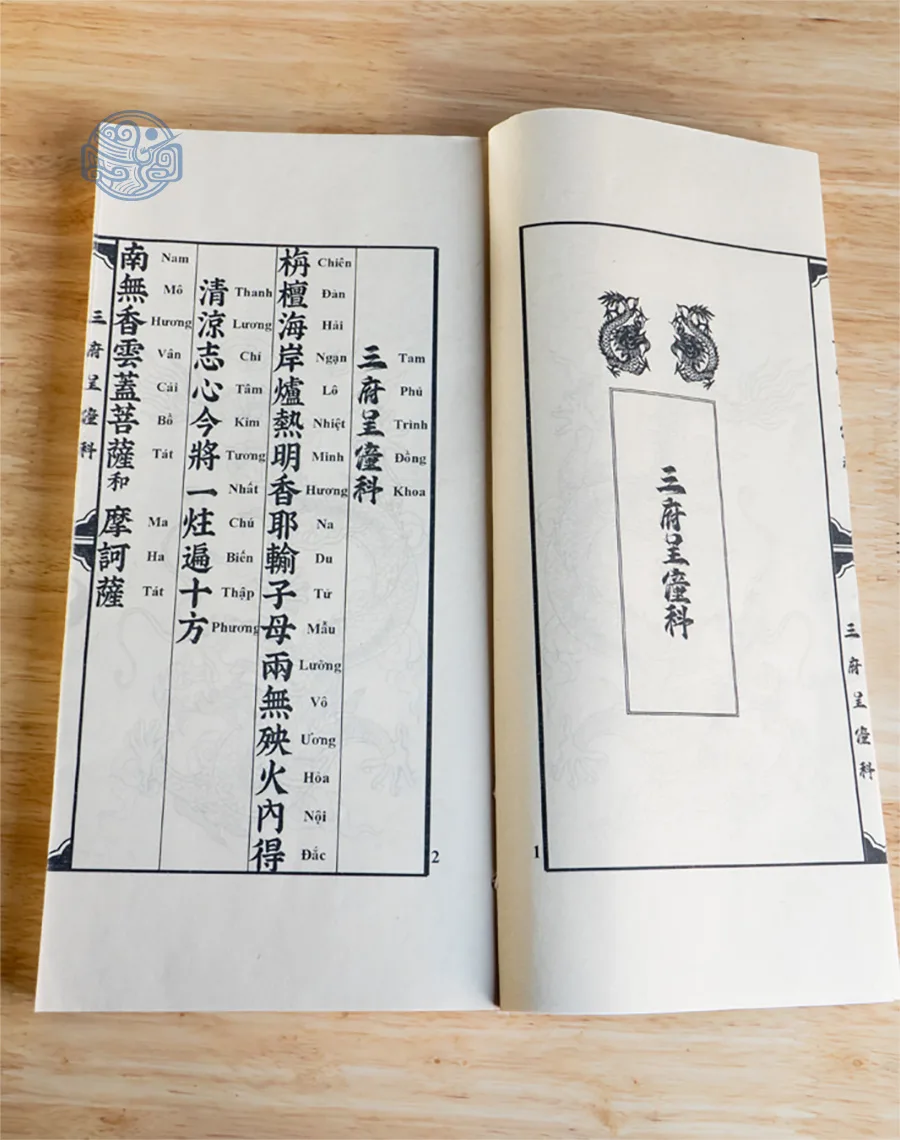 三府呈僮科
三府呈僮科
1
三府呈僮科
Tam Phủ Trình Đồng Khoa
栴檀海岸爐熱明香耶輸子母兩無殃火內得
Chiên Đàn Hải Ngạn Lô Nhiệt Minh Hương Na Du Tử Mẫu Lưỡng Vô Ương Hỏa Nội Đắc
清涼志心今將一炷遍十方
Thanh Lương Chí Tâm Kim Tương Nhất Chú Biến Thập Phương
南無香雲蓋菩薩和摩訶薩
Nam Mô Hương Vân Cái Bồ Tát Ma Ha Tát
三府呈僮科
2